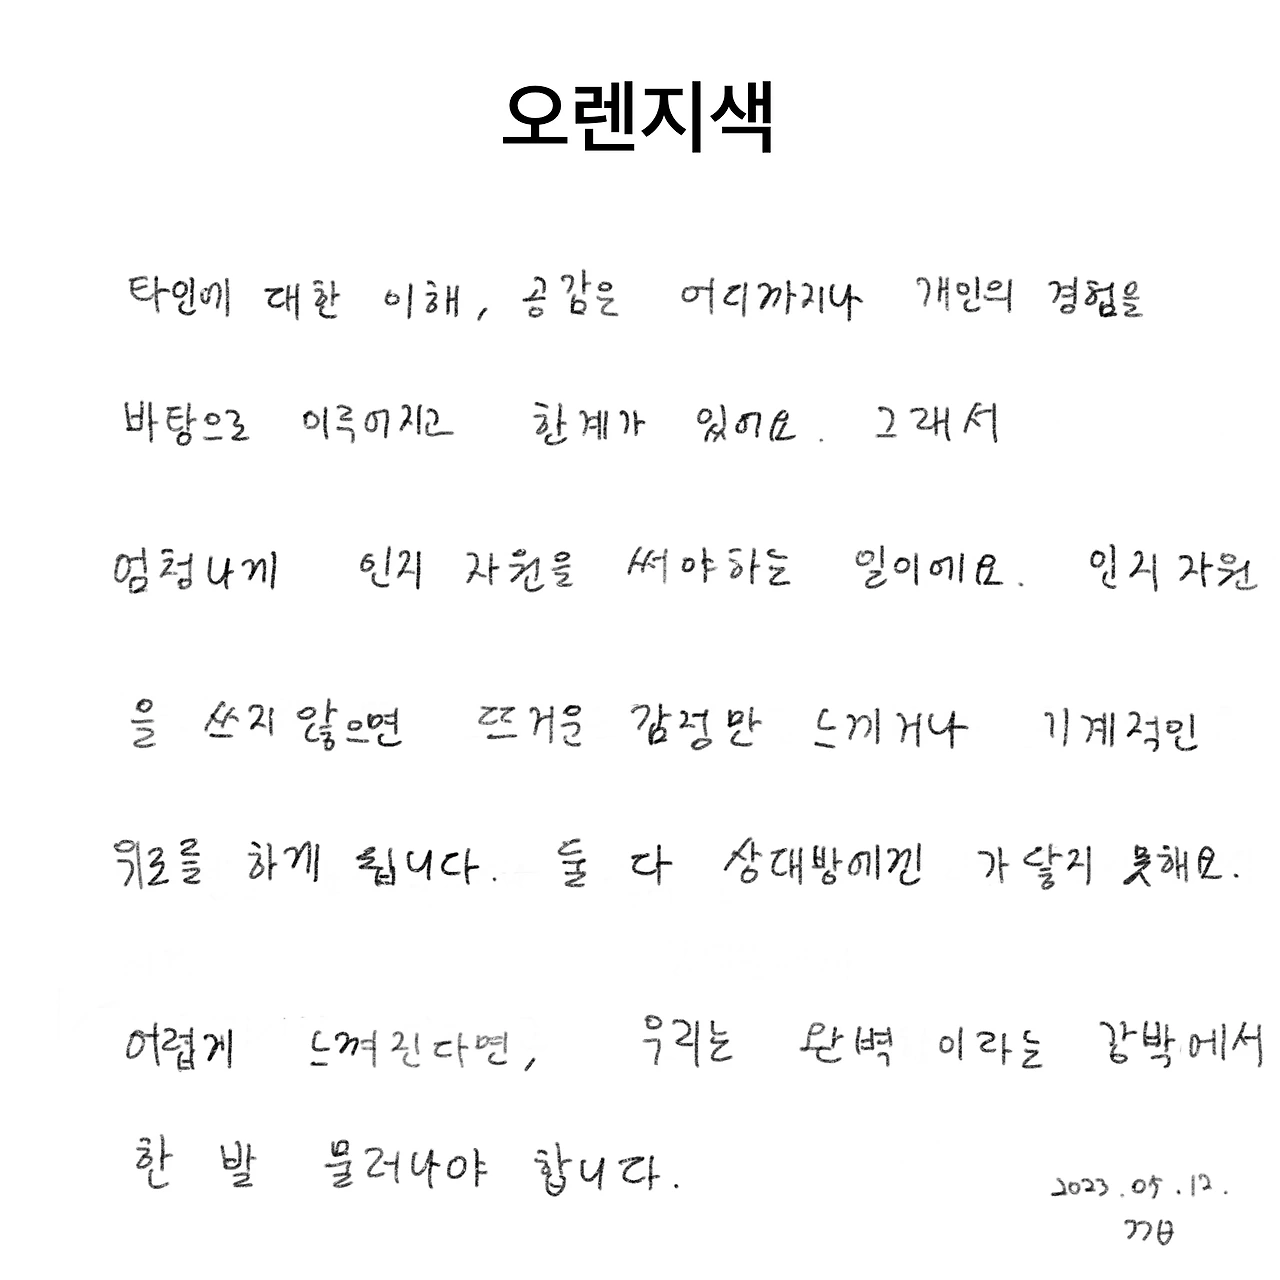 오렌지색
타인에 대한 이해, 공감은 어디까지나 개인의 경험을
바탕으로 이루어지고 한계가 있어요. 그래서
엄청나게 인지 자원을 써야하는 일이에요. 인지 자원
을 쓰지 않으면 뜨거운 감정만 느끼거나 기계적인
위로를 하게 됩니다. 둘 다 상대방에겐 가 닿지 못해요.
어렵게 느껴진다면, 우리는 완벽 이라는 강박에서
한 발 물러나야 합니다.
2023.05.12.